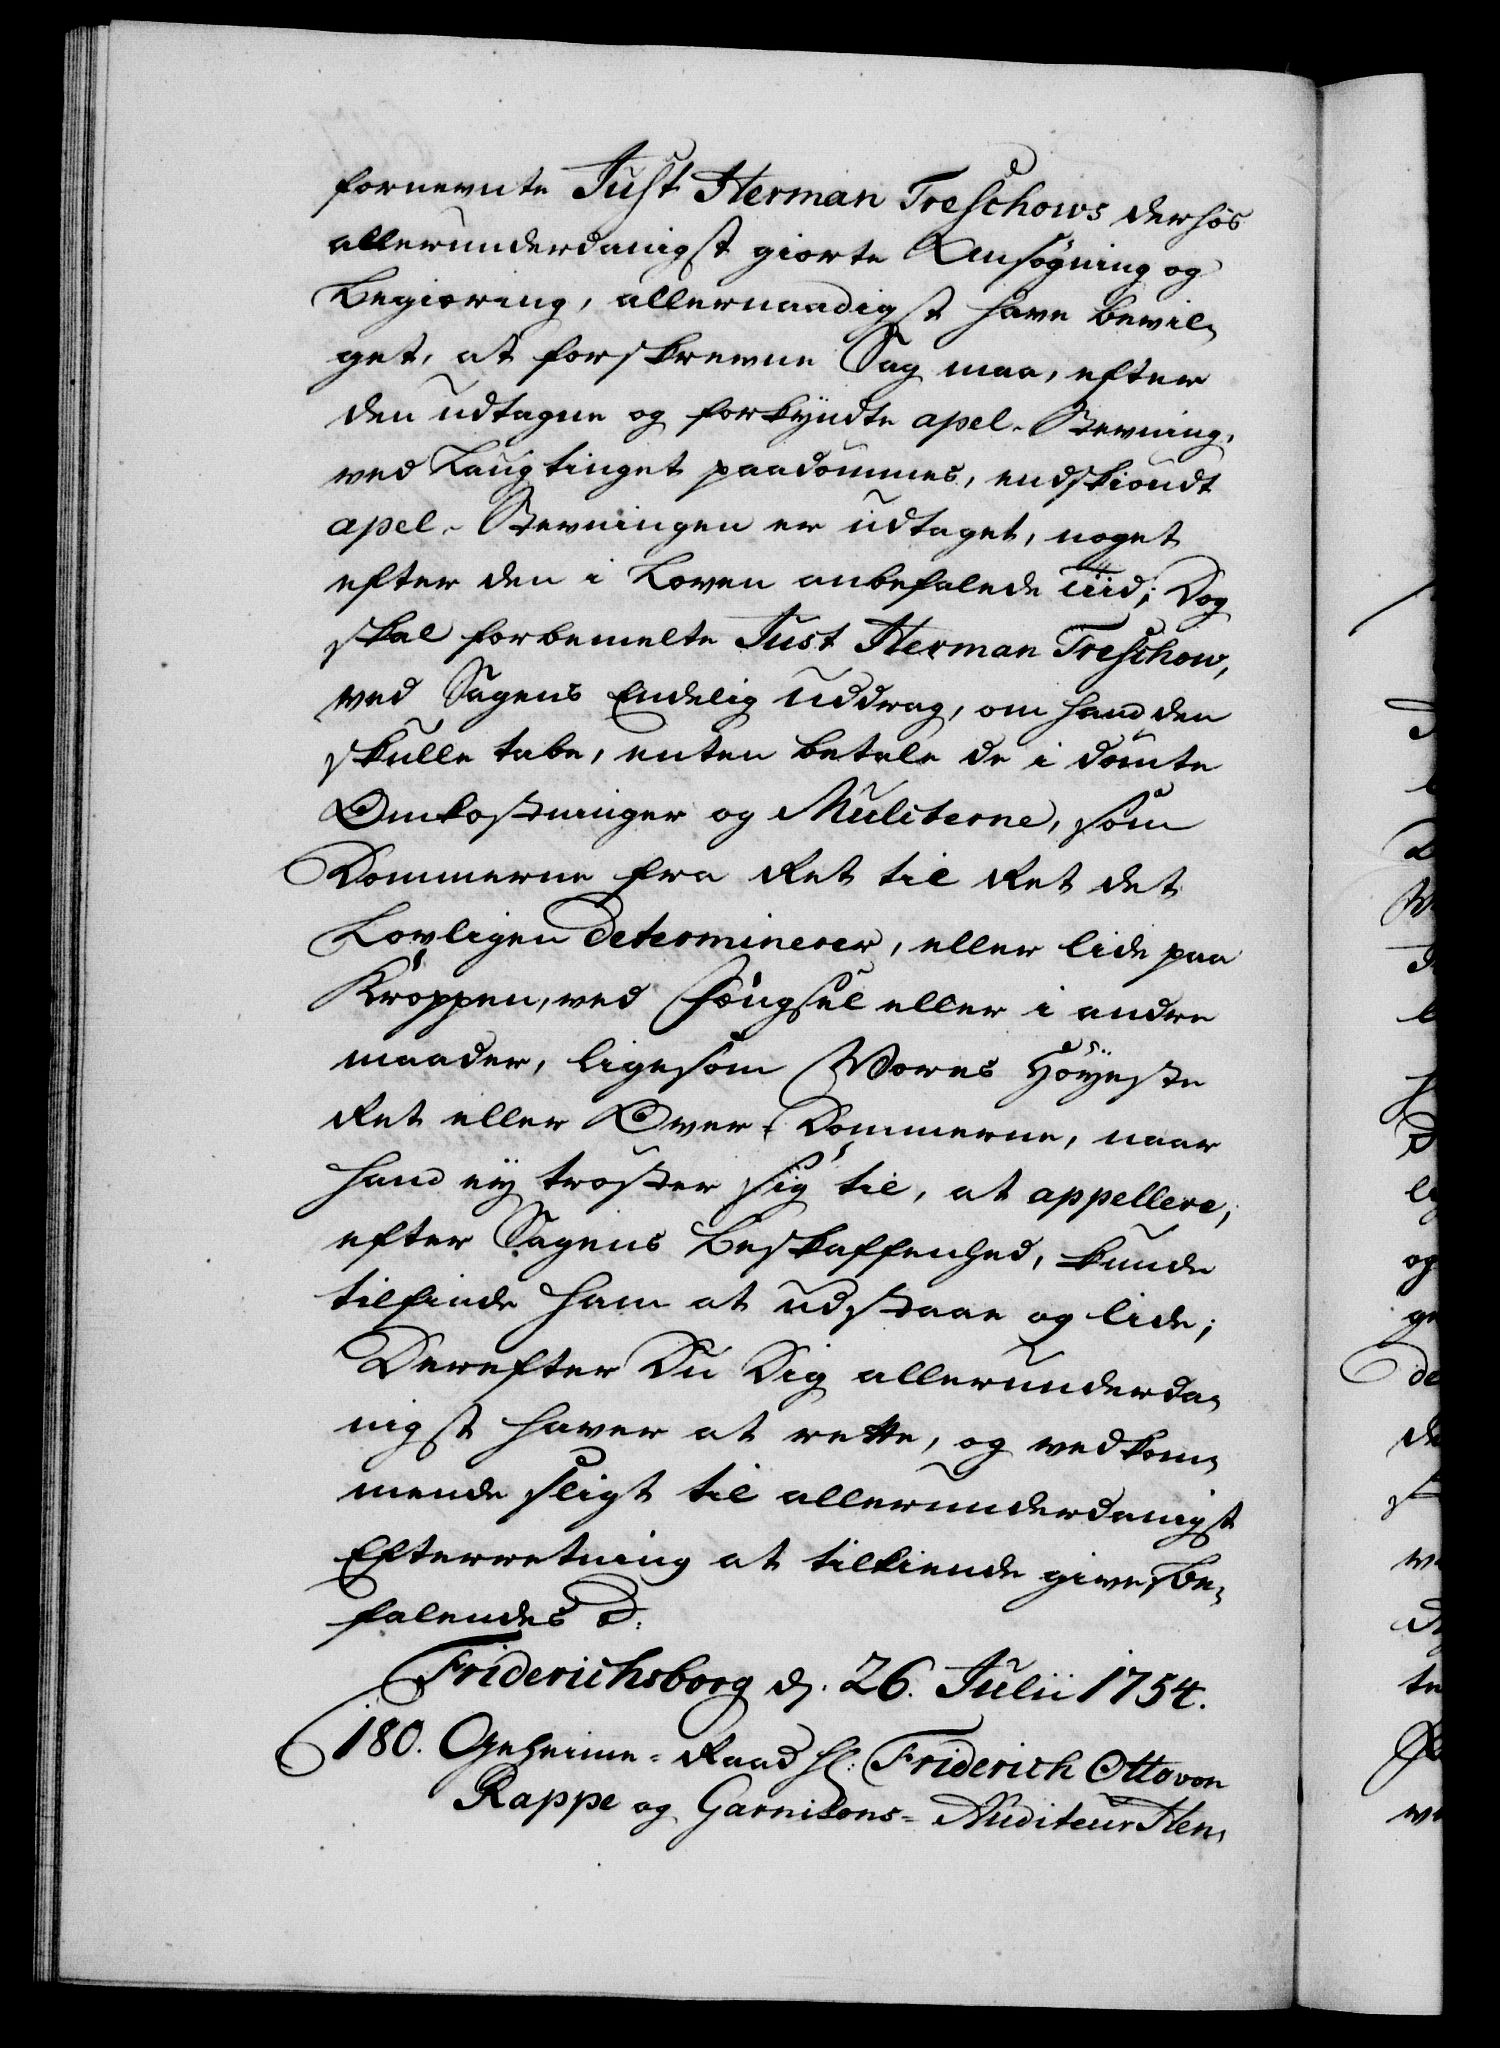 fornevnte Just Herman Treschows derhos
allerunderdanigst giorte Ansøgning og
Begiæring, allernaadigst have bevil-
get, at forskrevne Sag maa, efter
den udtagne og forkyndte apel-Stevning,
ved Laugtinget paadömmes, endskiöndt
apel-Stevningen er udtaget, noget
efter den i Loven anbefalede Tiid; Dog
skal forbemelte Just Herman Treschow,
ved Sagens Endelig Uddrag, om hand den
skulle tabe, enten betale de i dömte
Omkostninger og Mulcterne, som
Dommerne fra Ret til Ret det
Lovligen determinerer, eller lide paa
Kroppen, ved Fængsel eller i andre
maader, ligesom Vores Höyeste
Ret eller Over-Dommerne, naar
hand ey tröster sig til, at appellere,
efter Sagens Beskaffenhed, kunde
tilfinde ham at udstaae og lide;
Derefter Du Dig allerunderda-
nigst haver at rette, og vedkom-
mende sligt til allerunderdanigst
Efterretning at tilkiende give. Be-
falendes D:
Friderichsborg d. 26. Julii 1754.
180. Geheime-Raad Hr: Friderich Otto von
Rappe og Garnisons-Auditeur Hen-